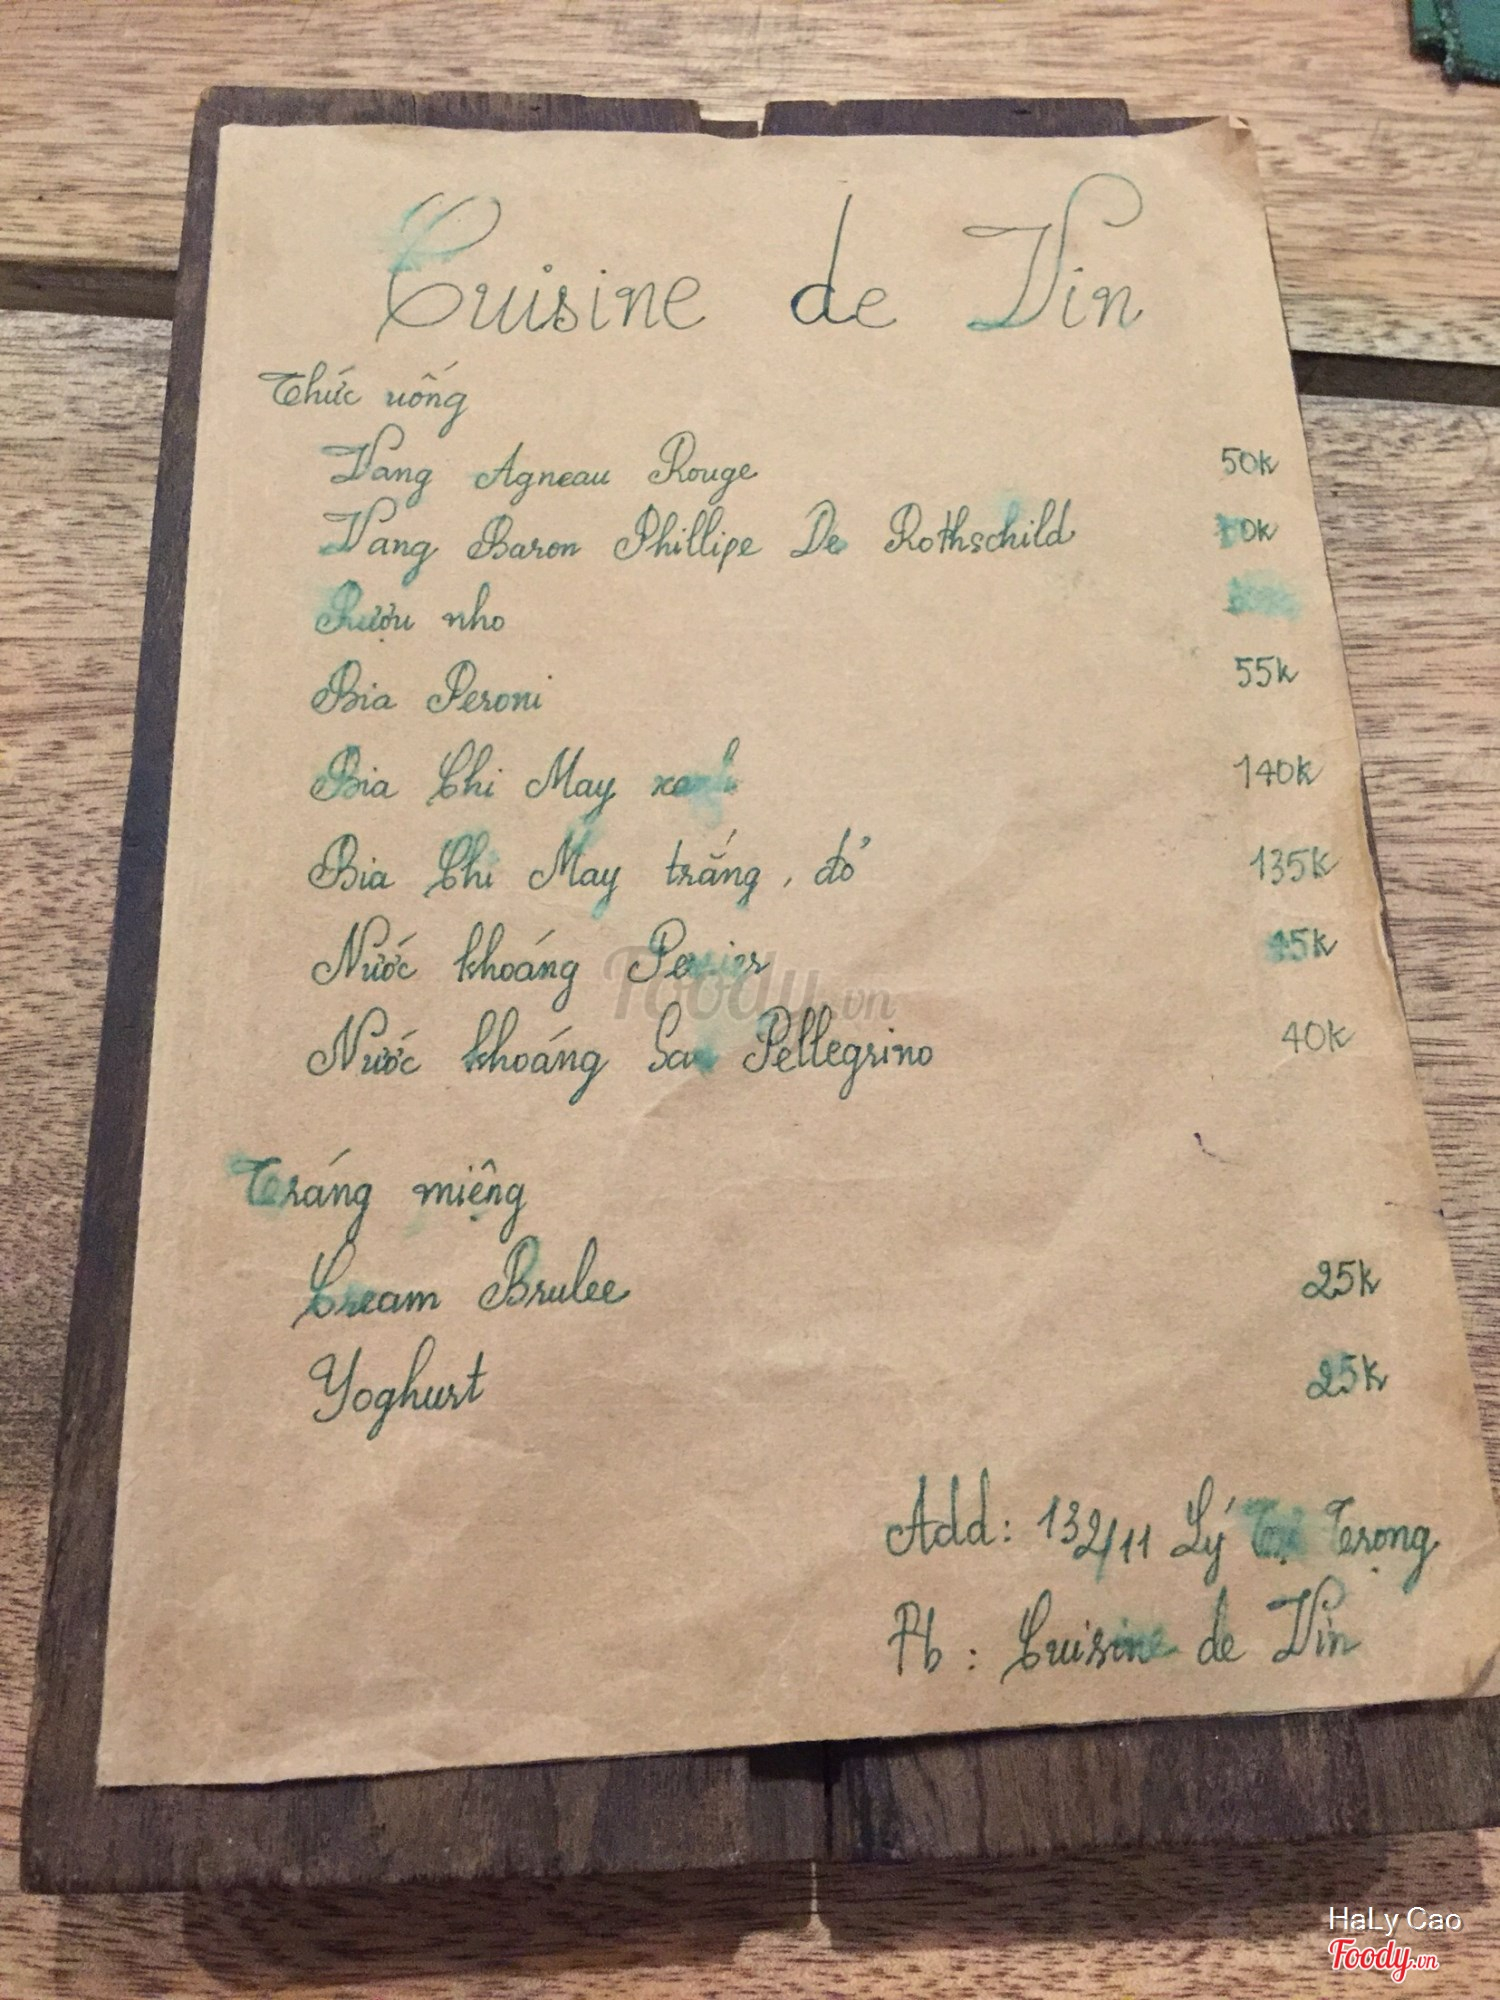 Cuisine de Vin
Thức uống
Vang Agneau Rouge 50k
Vang Baron Phillipe De Rothschild
Rượu nho
Bia Peroni 55k
Bia Chi May xanh 140k
Bia Chi May trắng, đỏ 135k
Nước khoáng Perrier
Nước khoáng San Pellegrino 40k
Tráng miệng
Cream Brulee 25k
Yoghurt 25k
Add: 132/11 Lý Tự Trọng
Fb : Cuisine de Vin
Foody.vn
HaLy Cao
Foody.vn